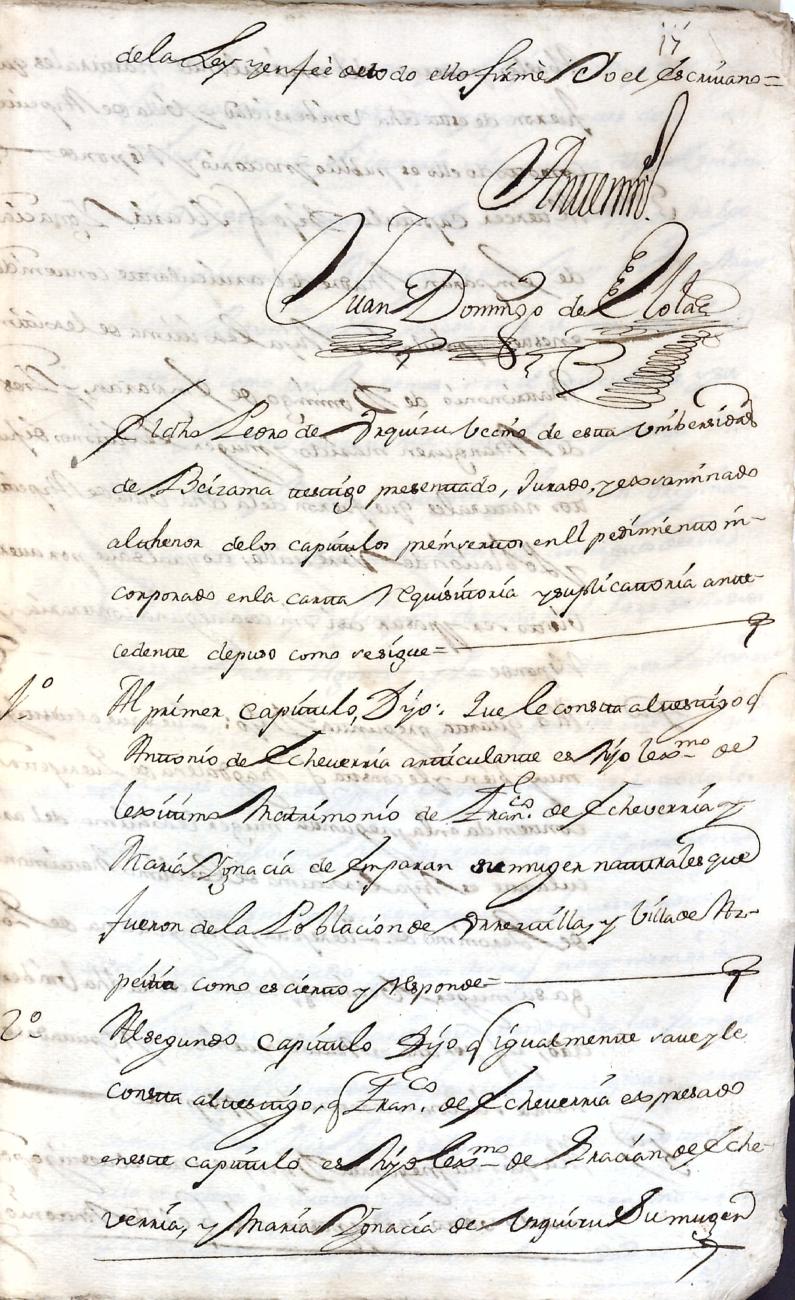 17
de la Ley y en fee de todo ello firmè Yo el Escriuano=
Antemi
Juan Domingo de Olola
El dho Pedro de Vrquizu Vecino de esta Vnibersidad
de Beizama testigo presentado, Jurado, y exsaminado
al thenor de los capitulos preinsertos en el pedimiento in-
corporado en la carta Requisitoria y suplicattoria ante-
cedente depuso como se sigue=
1º Al primer capitulo, Dijo: Que le consta al testigo q
Antonio de Echeverria articulante es hijo lexmo de
lexitimo Matrimonio de Franco. de Echeverria y
Maria Ygnacia de Emparan su muger naturales que
fueron de la Poblacion de Vrrestilla, y Villa de Az-
peitia como es cierto y responde=
2º Al segundo capitulo Dijo q igualmente saue y le
consta al testigo, q Franco. de Echeverria expresado
en este capitulo es hijo lexmo de Gracian de Eche-
verria, y Maria Ygnacia de Vrquizu Su muger